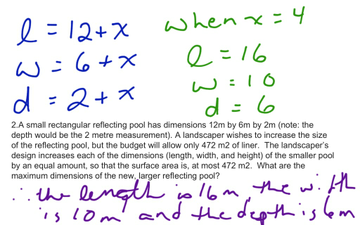 l = 12 + x
w = 6 + x
d = 2 + x
when x = 4
l = 16
w = 10
d = 6
2.A small rectangular reflecting pool has dimensions 12m by 6m by 2m (note: the
depth would be the 2 metre measurement). A landscaper wishes to increase the size
of the reflecting pool, but the budget will allow only 472 m2 of liner. The landscaper's
design increases each of the dimensions (length, width, and height) of the smaller pool
by an equal amount, so that the surface area is, at most 472 m2. What are the
maximum dimensions of the new, larger reflecting pool?
∴ the length is 16m, the width
is 10 m and the depth is 6m